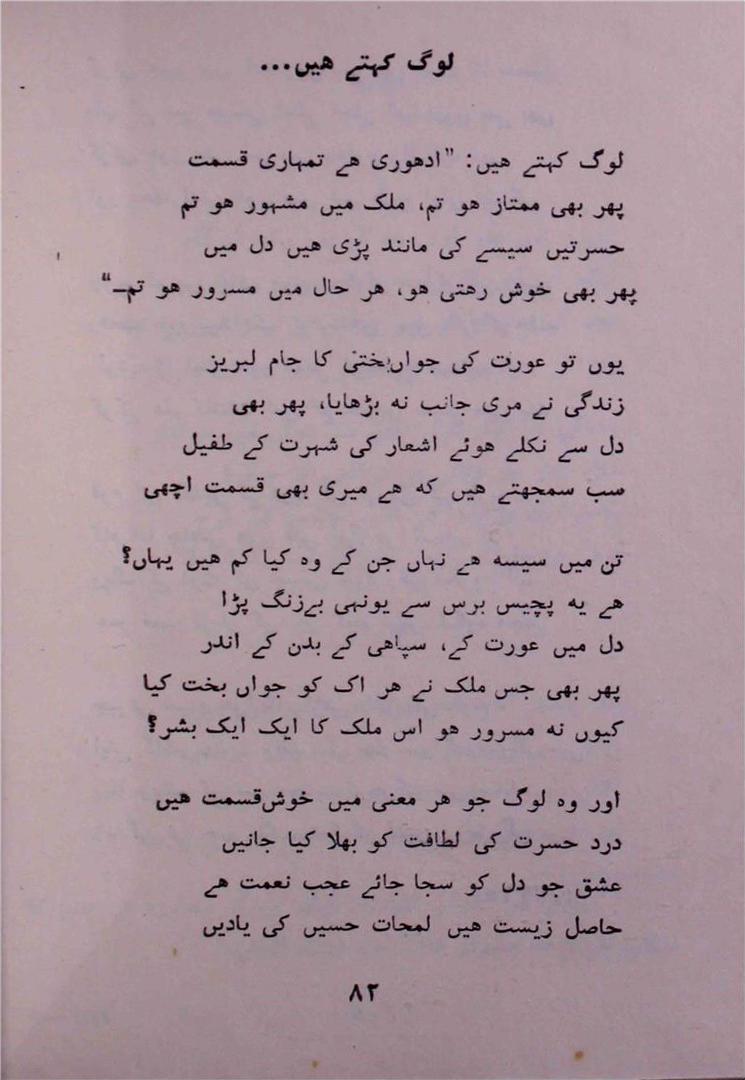 لوگ کہتے ھیں...
لوگ کہتے ھیں: "ادھوری ھے تمہاری قسمت
پھر بھی ممتاز ھو تم، ملک میں مشہور ھو تم
حسرتیں سیسے کی مانند پڑی ھیں دل میں
پھر بھی خوش رھتی ھو، ھر حال میں مسرور ھو تم۔"
یوں تو عورت کی جواں‌بختیٔ کا جام لبریز
زندگی نے مری جانب نہ بڑھایا، پھر بھی
دل سے نکلے ھوئے اشعار کی شہرت کے طفیل
سب سمجھتے ھیں کہ ھے میری بھی قسمت اچھی
تن میں سیسہ ھے نہاں جن کے وہ کیا کم ھیں یہاں؟
ھے یہ پچیس برس سے یونہی بےزنگ پڑا
دل میں عورت کے، سپاھی کے بدن کے اندر
پھر بھی جس ملک نے ھر اک کو جواں بخت کیا
کیوں نہ مسرور ھو اس ملک کا ایک ایک بشر؟
اور وہ لوگ جو ھر معنی میں خوش‌قسمت ھیں
درد حسرت کی لطافت کو بھلا کیا جانیں
عشق جو دل کو سجا جائے عجب نعمت ھے
حاصل زیست ھیں لمحات حسیں کی یادیں
۸۲